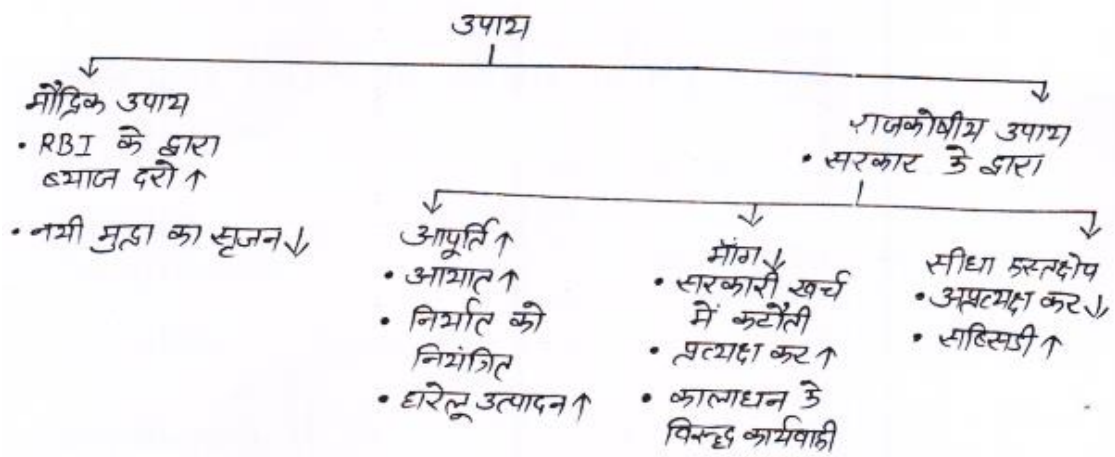 उपाय
मौद्रिक उपाय
• RBI के द्वारा
ब्याज दरों ↑
• नयी मुद्रा का सृजन ↓
राजकोषीय उपाय
• सरकार के द्वारा
आपूर्ति ↑
• आयात ↑
• निर्यात को
नियंत्रित
• घरेलू उत्पादन ↑
माँग ↓
• सरकारी खर्च
में कटौती
• प्रत्यक्ष कर ↑
• कालाधन के
विरूद्ध कार्यवाही
सीधा हस्तक्षेप
• अप्रत्यक्ष कर ↓
• सब्सिडी ↑